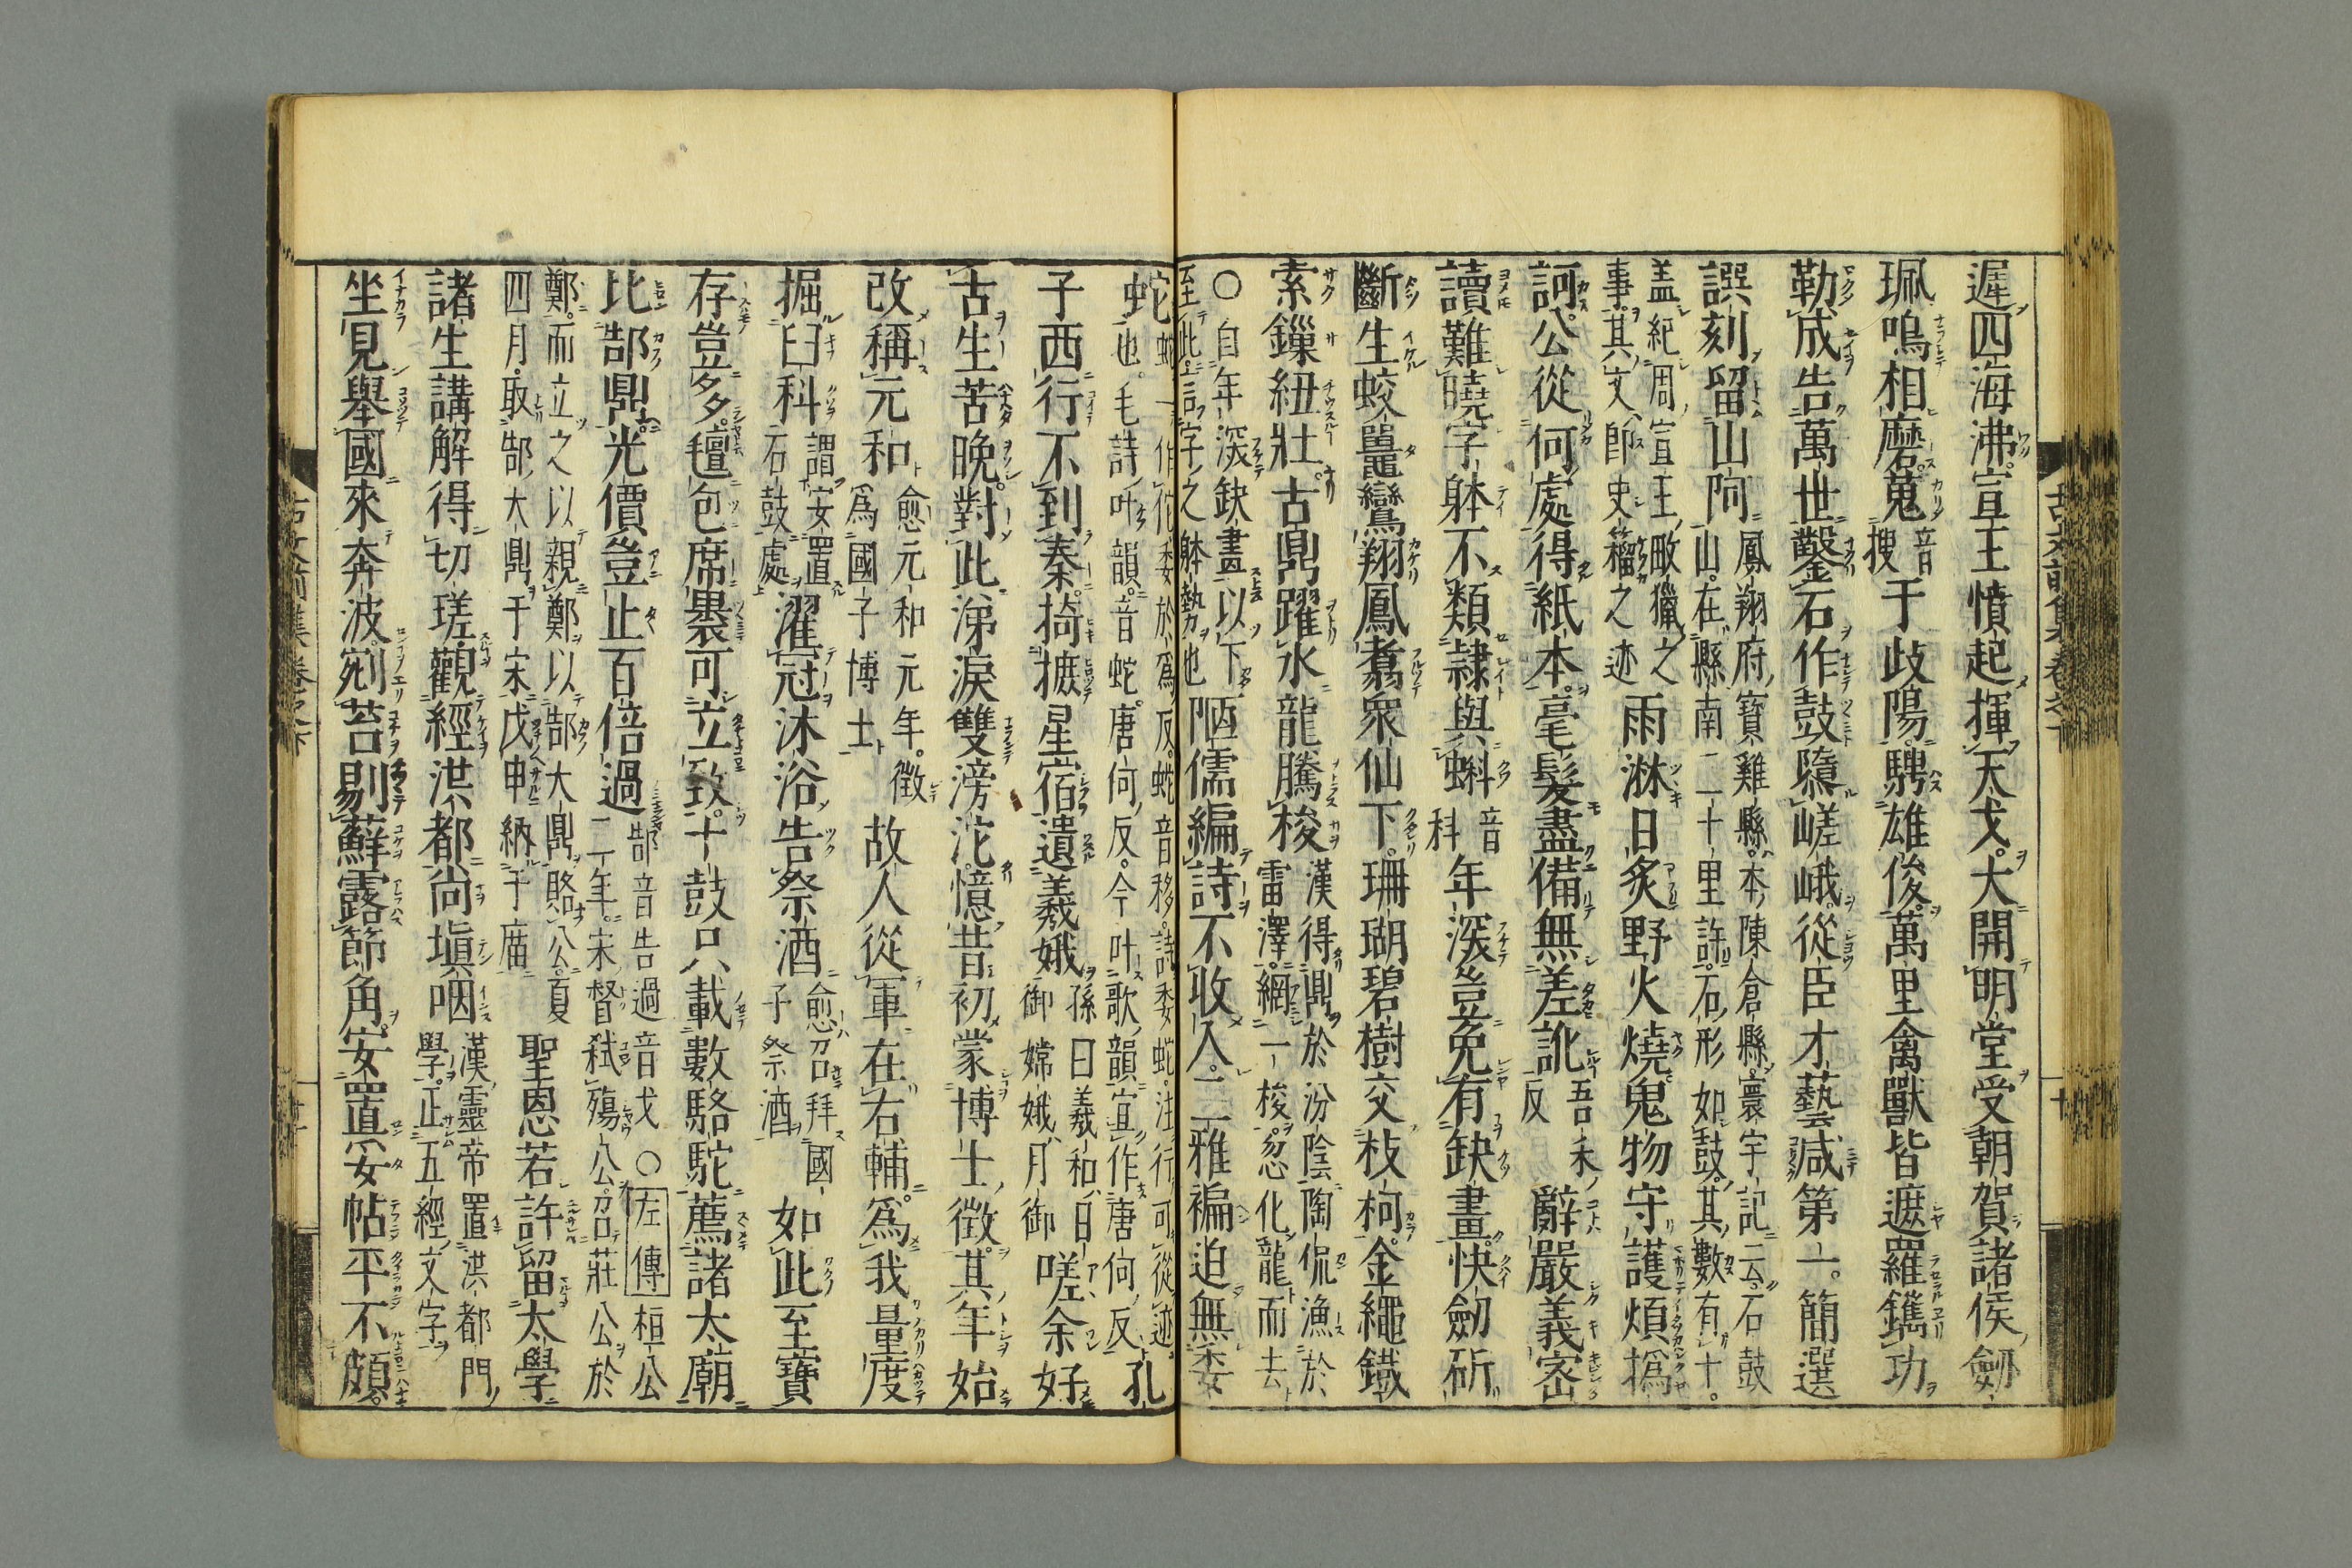 遲四海沸宣王憤起揮天戈大開明堂受朝賀諸侯劒
珮鳴相磨蒐音搜于歧陽騁雄俊萬里禽獸皆遮羅鐫功
勒成告萬世鑿石作鼓隳嵯峨從臣才藝咸第一簡選
譔刻留山阿鳳翔府寶雞縣本陳倉縣寰宇記云石鼓山在縣南二十里許石形如鼓其數有十
盖紀周宣王畋獵之事其文卽史籀之迹雨淋日炙野火燒鬼物守護煩撝
訶公從何處得紙本毫髮盡備無差訛吾禾反辭嚴義密
讀難曉字躰不類隷與蝌音科年深豈免有缺畫快劒斫
斷生蛟鼉鸞翔鳳翥衆仙下珊瑚碧樹交枝柯金繩鐵
索鏁紐壯古鼎躍水龍騰梭漢得鼎於汾陰陶侃漁於雷澤網一梭忽化龍而去
○自年深缺畫以下至此言字之躰勢也陋儒編詩不收入二雅褊迫無委
蛇蛇一作佗委於爲反蛇音移詩委蛇注行可從迹也毛詩叶韻音蛇唐何反今叶歌韻宜作唐何反孔
子西行不到秦掎摭星宿遺羲娥孫曰羲和日御嫦娥月御嗟余好
古生苦晩對此涕淚雙滂沱憶昔初蒙博士徴其年始
改稱元和愈元和元年徵爲國子博士故人從軍在右輔爲我量度
掘臼科謂安置石鼓處濯冠沐浴告祭酒愈召拜國子祭酒如此至寶
存豈多氊包席褁可立致十鼓只載數駱駝薦諸太廟
比郜鼎光價豈止百倍過郜音告過音戈○左傳桓公二年宋督弑殤公召莊公於
鄭而立之以親鄭以郜大鼎賂公夏四月取郜大鼎于宋戊申納于廣聖恩若許留太學
諸生講解得切瑳觀經洪都尚塡咽漢靈帝置洪都門學正五經文字
坐見舉國來奔波剜苔剔蘚露節角安置妥帖平不頗